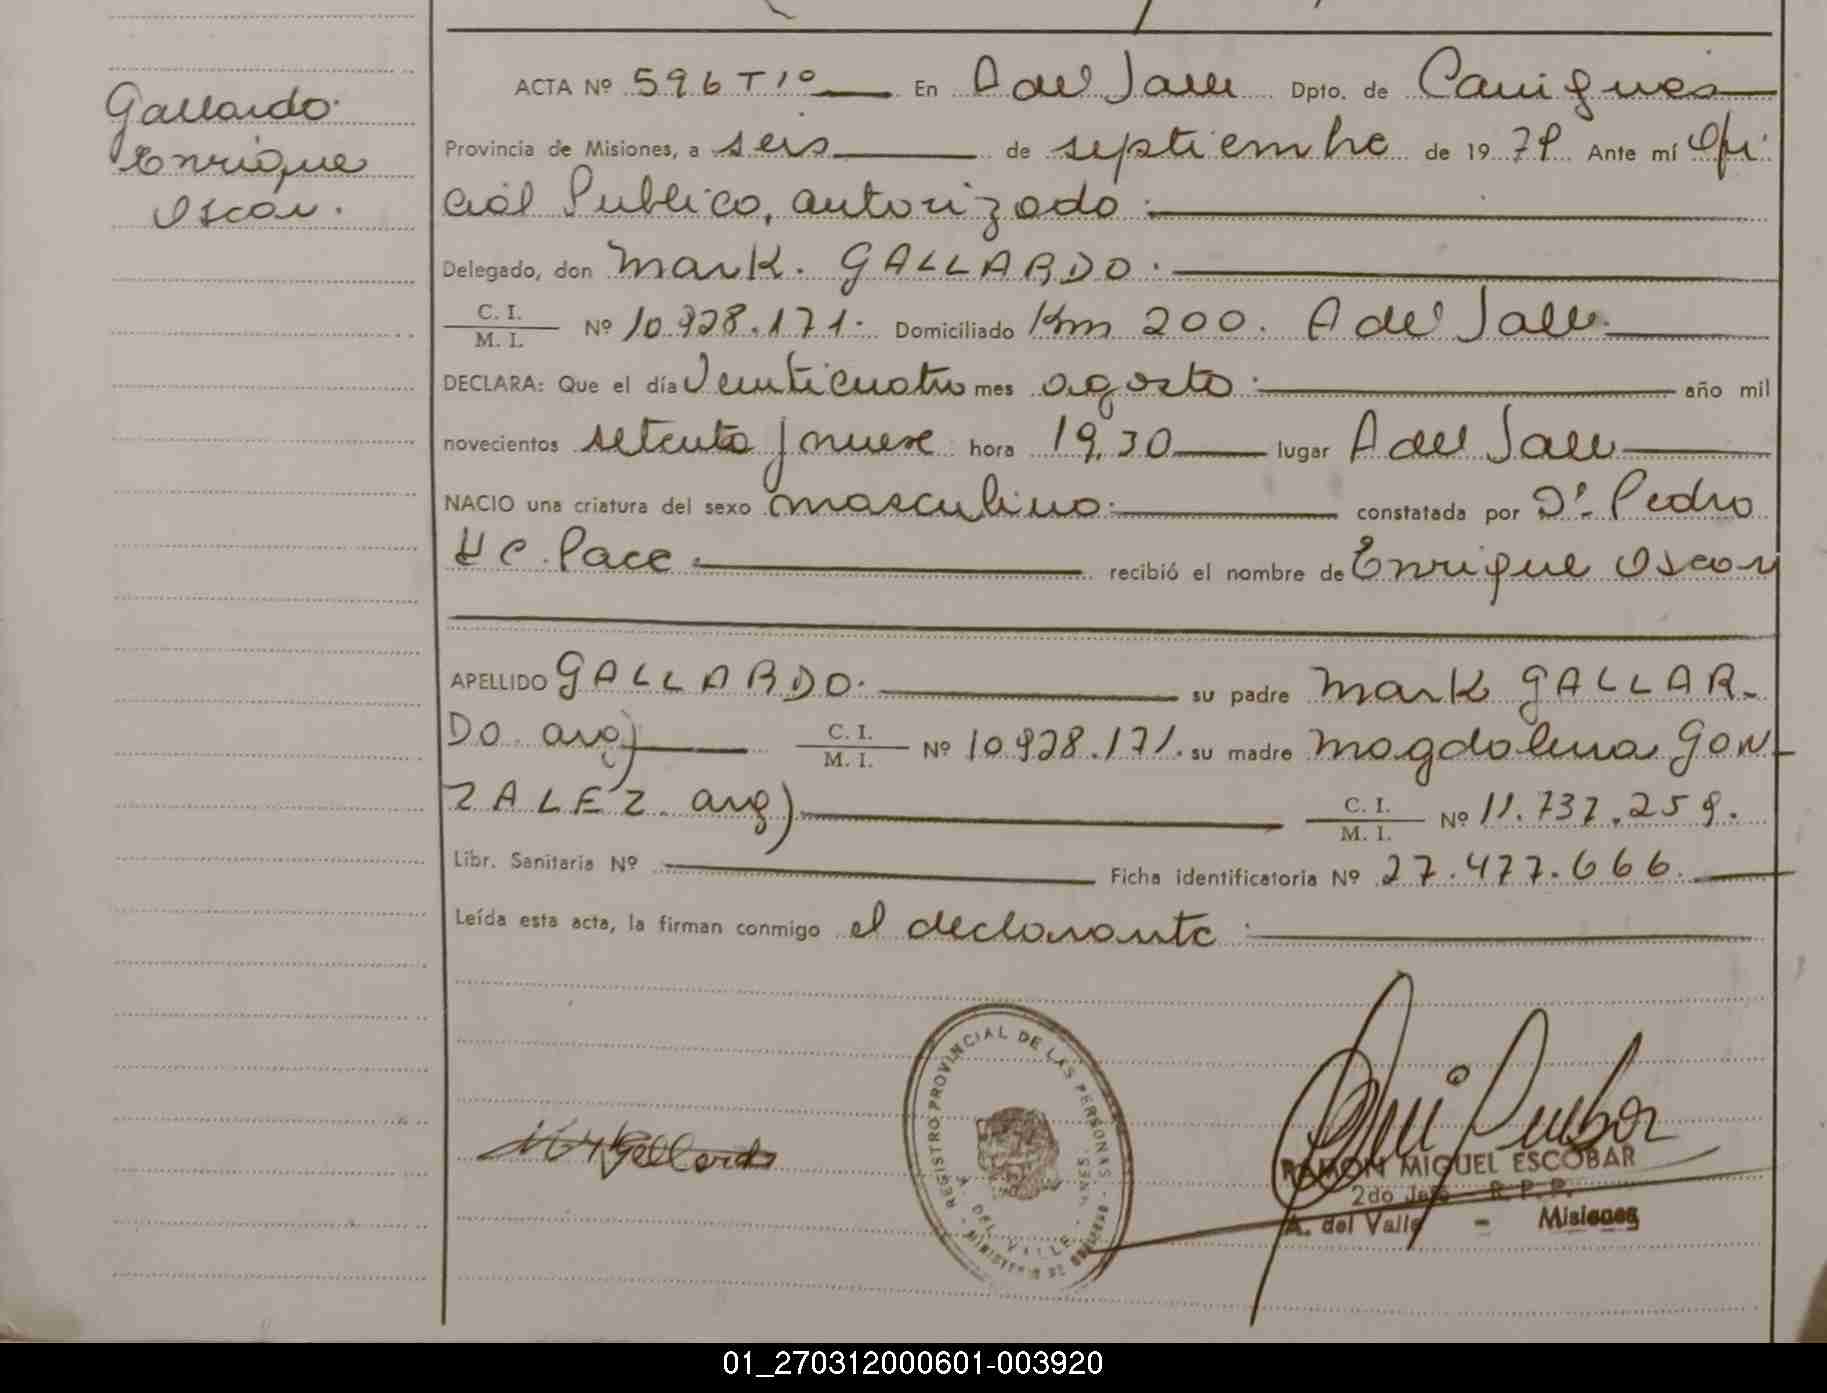 Gallardo
Enrique
Oscar.
ACTA Nº 596 Tº 1º En A del Valle Dpto. de Cainguás
Provincia de Misiones, a seis de septiembre de 1979. Ante mí Ofi
cial Publico, autorizado
Delegado, don Mark. GALLARDO.
C. I.
M. I. Nº 10.928.171. Domiciliado Km 200. A del Valle.
DECLARA: Que el día Veinticuatro mes agosto año mil
novecientos setenta y nueve hora 19,30 lugar A del Valle
NACIO una criatura del sexo masculino constatada por Dr. Pedro
H C. Pace recibió el nombre de Enrique Oscar
APELLIDO GALLARDO. su padre Mark GALLAR-
DO. arg) C. I.
M. I. Nº 10.928.171. su madre Magdalena GON-
ZALEZ. arg) C. I.
M. I. Nº 11.737.259.
Libr. Sanitaria Nº Ficha identificatoria Nº 27.477.666.
Leída esta acta, la firman conmigo el declarante
Gallardo
REGISTRO PROVINCIAL DE LAS PERSONAS
A. DEL VALLE - MNES.
RAMON MIGUEL ESCOBAR
2do Jefe R. P. P.
A. del Valle - Misiones
01_270312000601-003920